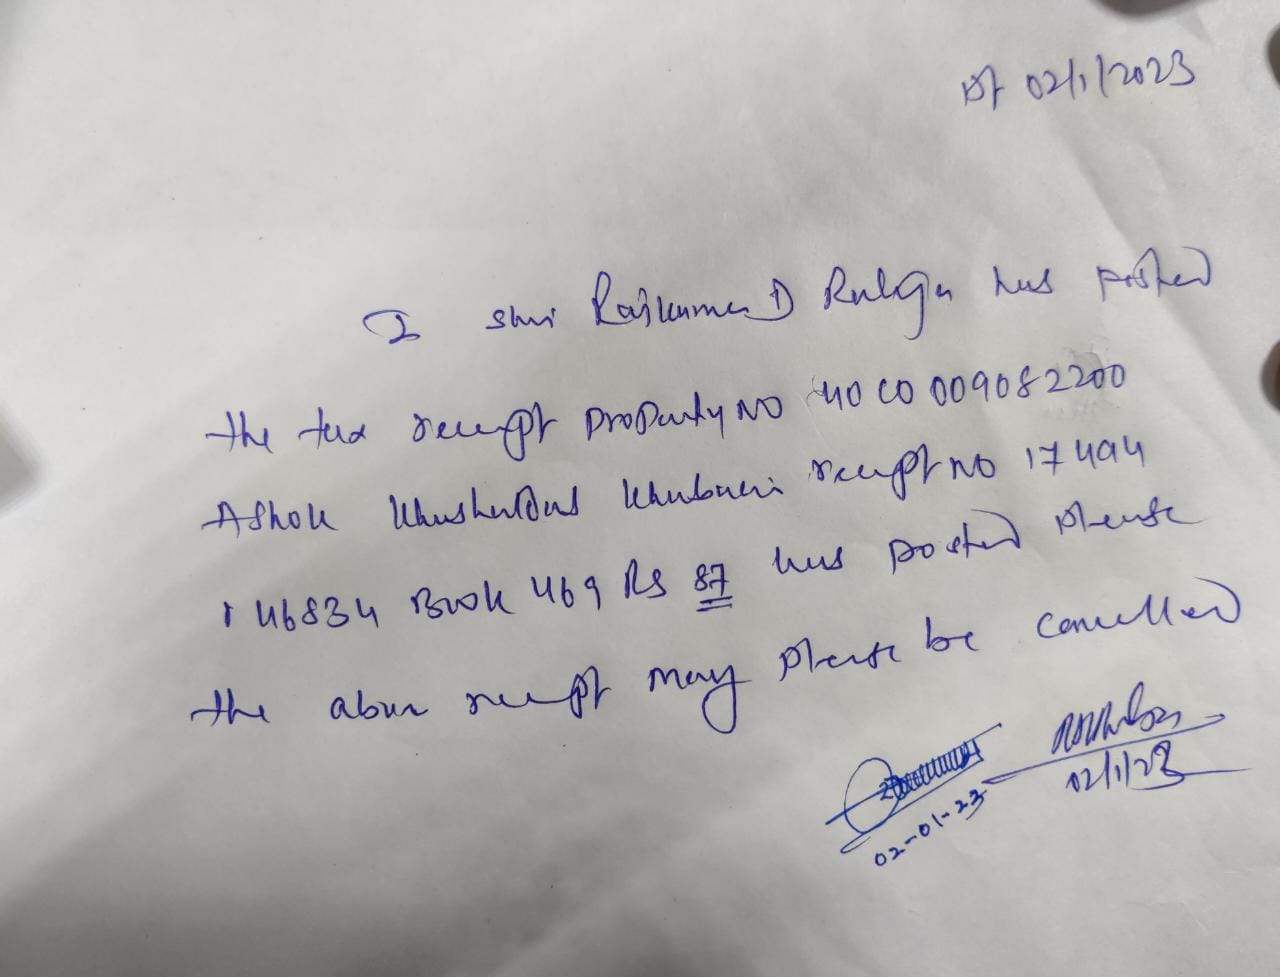 Dt 02/1/2023
I shri Rajkumar D has posted
the tax receipt Property NO 40 CO 009082200
Ashok receipt NO 17494
146834 Book 469 Rs 87 has posted please
the above receipt may please be cancelled
02/1/23
02-01-23